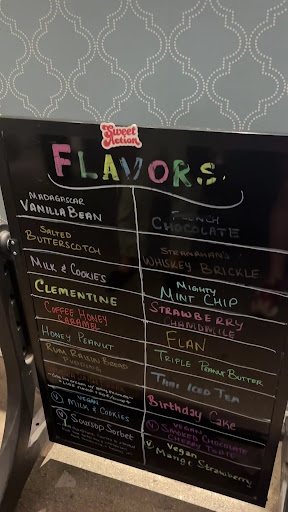 Sweet
Action
FLAVORS
MADAGASCAR
VANILLA BEAN
SALTED
BUTTERSCOTCH
MILK & COOKIES
CLEMENTINE
COFFEE HONEY
CARAMEL
HONEY PEANUT
RUM RAISIN BREAD
PUDDING
VEGAN
MILK & COOKIES
SOURSOP SORBET
FRENCH
CHOCOLATE
STRANAHAN'S
WHISKEY BRICKLE
MIGHTY
MINT CHIP
STRAWBERRY
CHAMOMILE
FLAN
TRIPLE PEANUT BUTTER
THAI ICED TEA
Birthday Cake
V VEGAN
SMOKED CHOCOLATE
CHERRY
V Vegan
Mango Strawberry